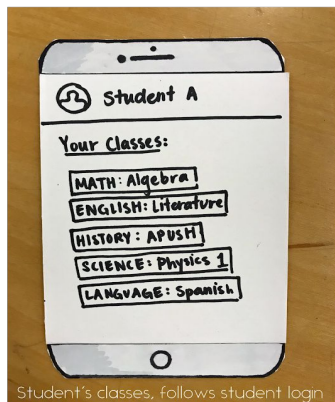 Student A
Your Classes:
MATH: Algebra
ENGLISH: Literature
HISTORY: APUSH
SCIENCE: Physics 1
LANGUAGE: Spanish
Student's classes, follows student login